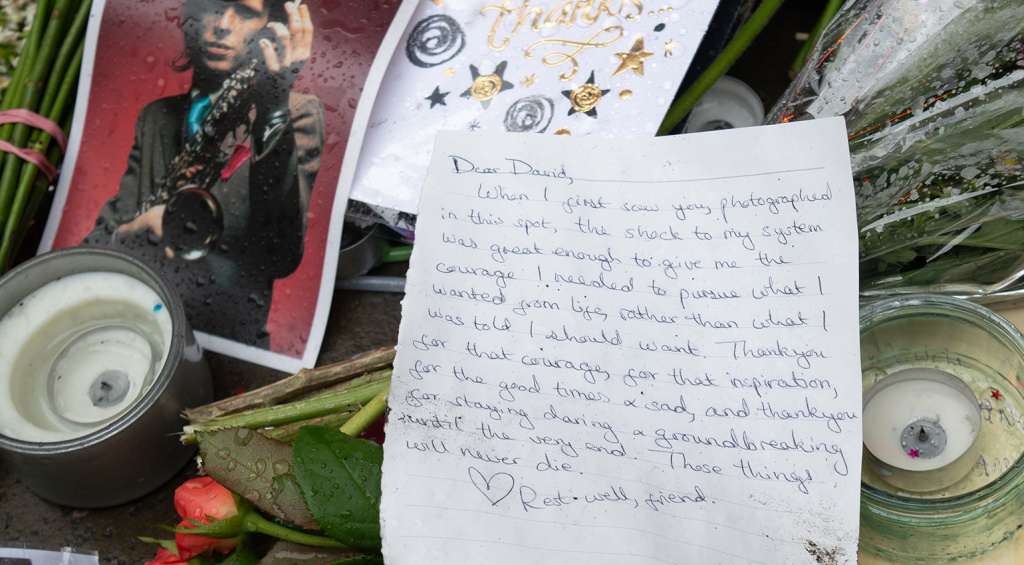 Thanks...
Dear David,
When I first saw you, photographed
in this spot, the shock to my system
was great enough to give me the
courage I needed to pursue what I
wanted from life, rather than what I
was told I should want. Thankyou
for that courage, for that inspiration,
for the good times & sad, and thankyou
for staying daring & groundbreaking
until the very end. These things
will never die.
♡ Rest well, friend.